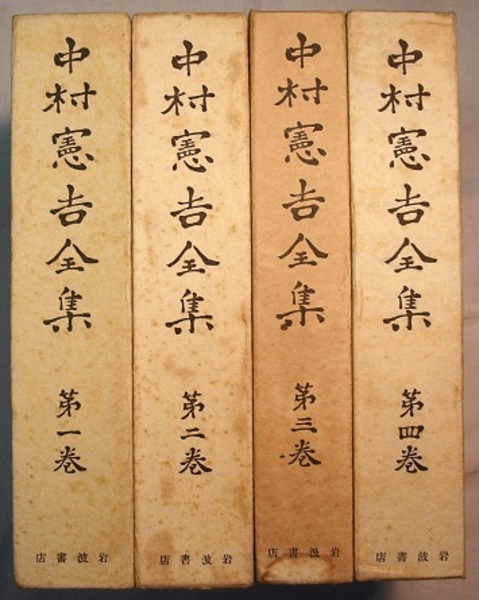 中村憲吉全集
第一巻
店書波岩
中村憲吉全集
第二巻
店書波岩
中村憲吉全集
第三巻
店書波岩
中村憲吉全集
第四巻
店書波岩